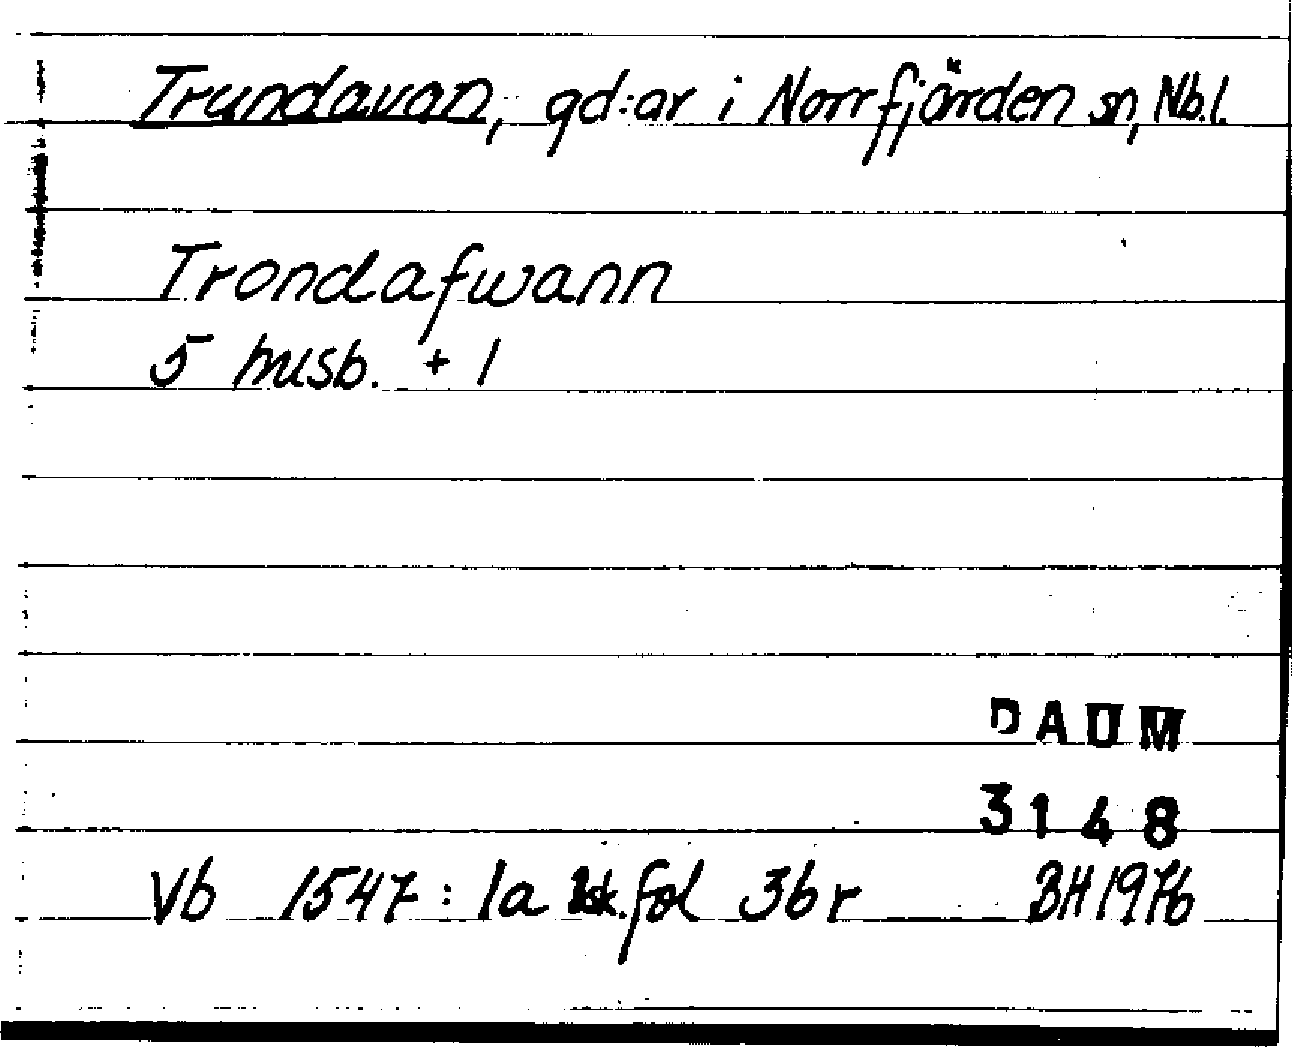 Trundavan, gd:ar i Norrfjärden sn, Nb.l.
Trondafwann
5 husb. + 1
DAUM
3148
Vb 1547: 1a lsk. fol 36 r BH 1976